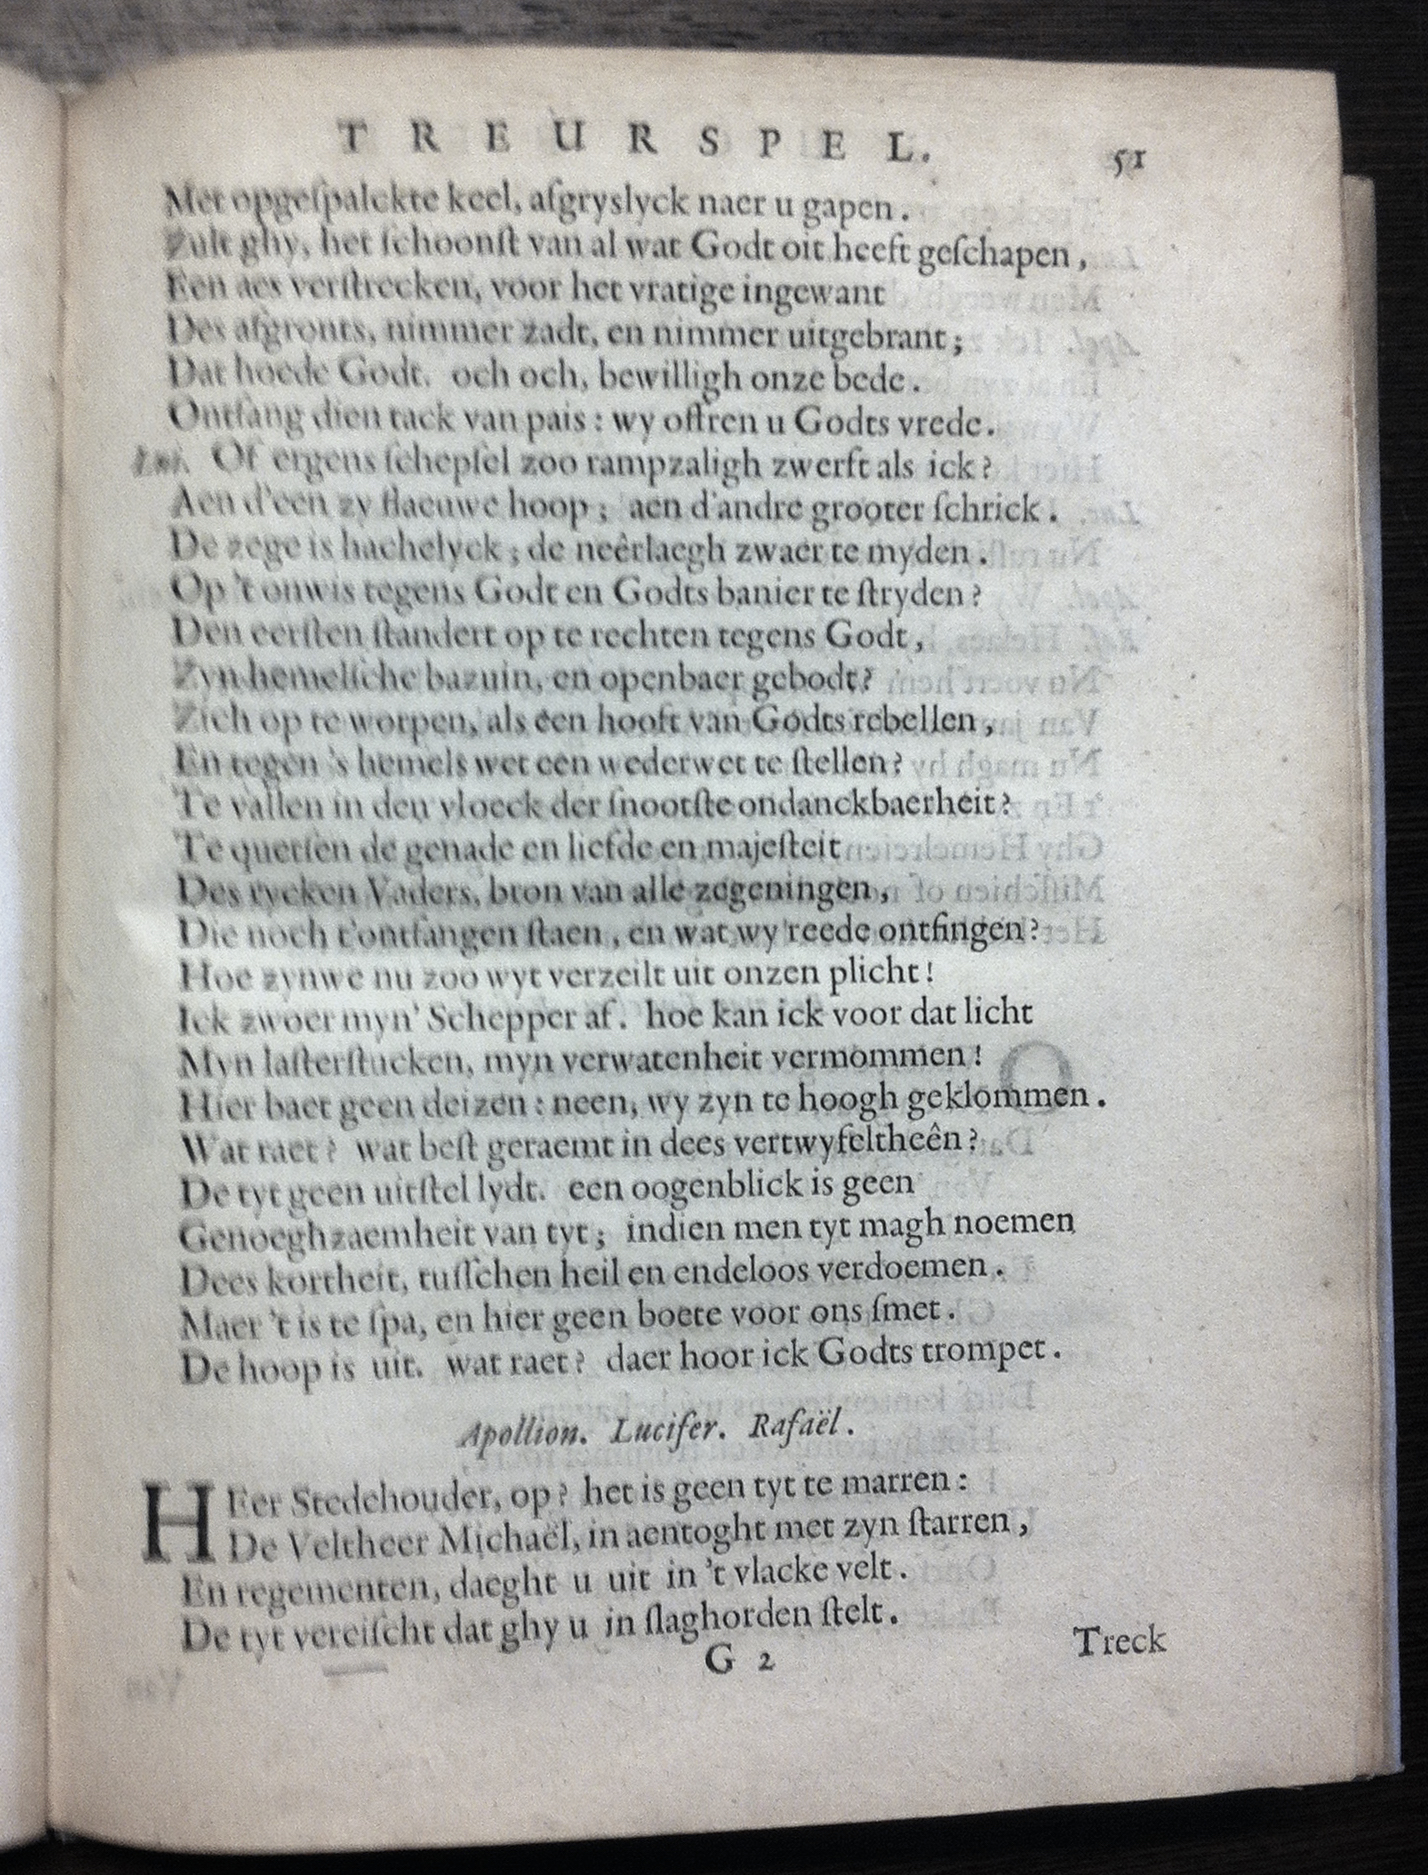 TREURSPEL. 51
Met opgeſpalckte keel, afgryslyck naer u gapen.
Zult ghy, het ſchoonſt van al wat Godt oit heeft geſchapen,
Een aes verſtrecken, voor het vratige ingewant
Des afgronts, nimmer zadt, en nimmer uitgebrant;
Dat hoede Godt. och och, bewilligh onze bede.
Ontfang dien tack van pais: wy offren u Godts vrede.
Luc. Of ergens ſchepſel zoo rampzaligh zwerft als ick?
Aen d'een zy flaeuwe hoop; aen d'andre grooter ſchrick.
De zege is hachelyck; de neêrlaegh zwaer te myden.
Op 't onwis tegens Godt en Godts banier te ſtryden?
Den eerſten ſtandert op te rechten tegens Godt,
Zyn hemelſche bazuin, en openbaer gebodt?
Zich op te worpen, als een hooft van Godts rebellen,
En tegen 's hemels wet een wederwet te ſtellen?
Te vallen in den vloeck der ſnootſte ondanckbaerheit?
Te quetſen de genade en liefde en majeſteit
Des rycken Vaders, bron van alle zegeningen,
Die noch t'ontfangen ſtaen, en wat wy reede ontfingen?
Hoe zynwe nu zoo wyt verzeilt uit onzen plicht!
Ick zwoer myn' Schepper af. hoe kan ick voor dat licht
Myn laſterſtucken, myn verwatenheit vermommen!
Hier baet geen deizen: neen, wy zyn te hoogh geklommen.
Wat raet? wat beſt geraemt in dees vertwyfeltheên?
De tyt geen uitſtel lydt. een oogenblick is geen
Genoeghzaemheit van tyt; indien men tyt magh noemen
Dees kortheit, tuſſchen heil en endeloos verdoemen.
Maer 't is te ſpa, en hier geen boete voor ons ſmet.
De hoop is uit. wat raet? daer hoor ick Godts trompet.
Apollion. Lucifer. Rafaël.
HEer Stedehouder, op? het is geen tyt te marren:
De Veltheer Michaël, in aentoght met zyn ſtarren,
En regementen, daeght u uit in 't vlacke velt.
De tyt vereiſcht dat ghy u in ſlaghorden ſtelt.
G 2 Treck